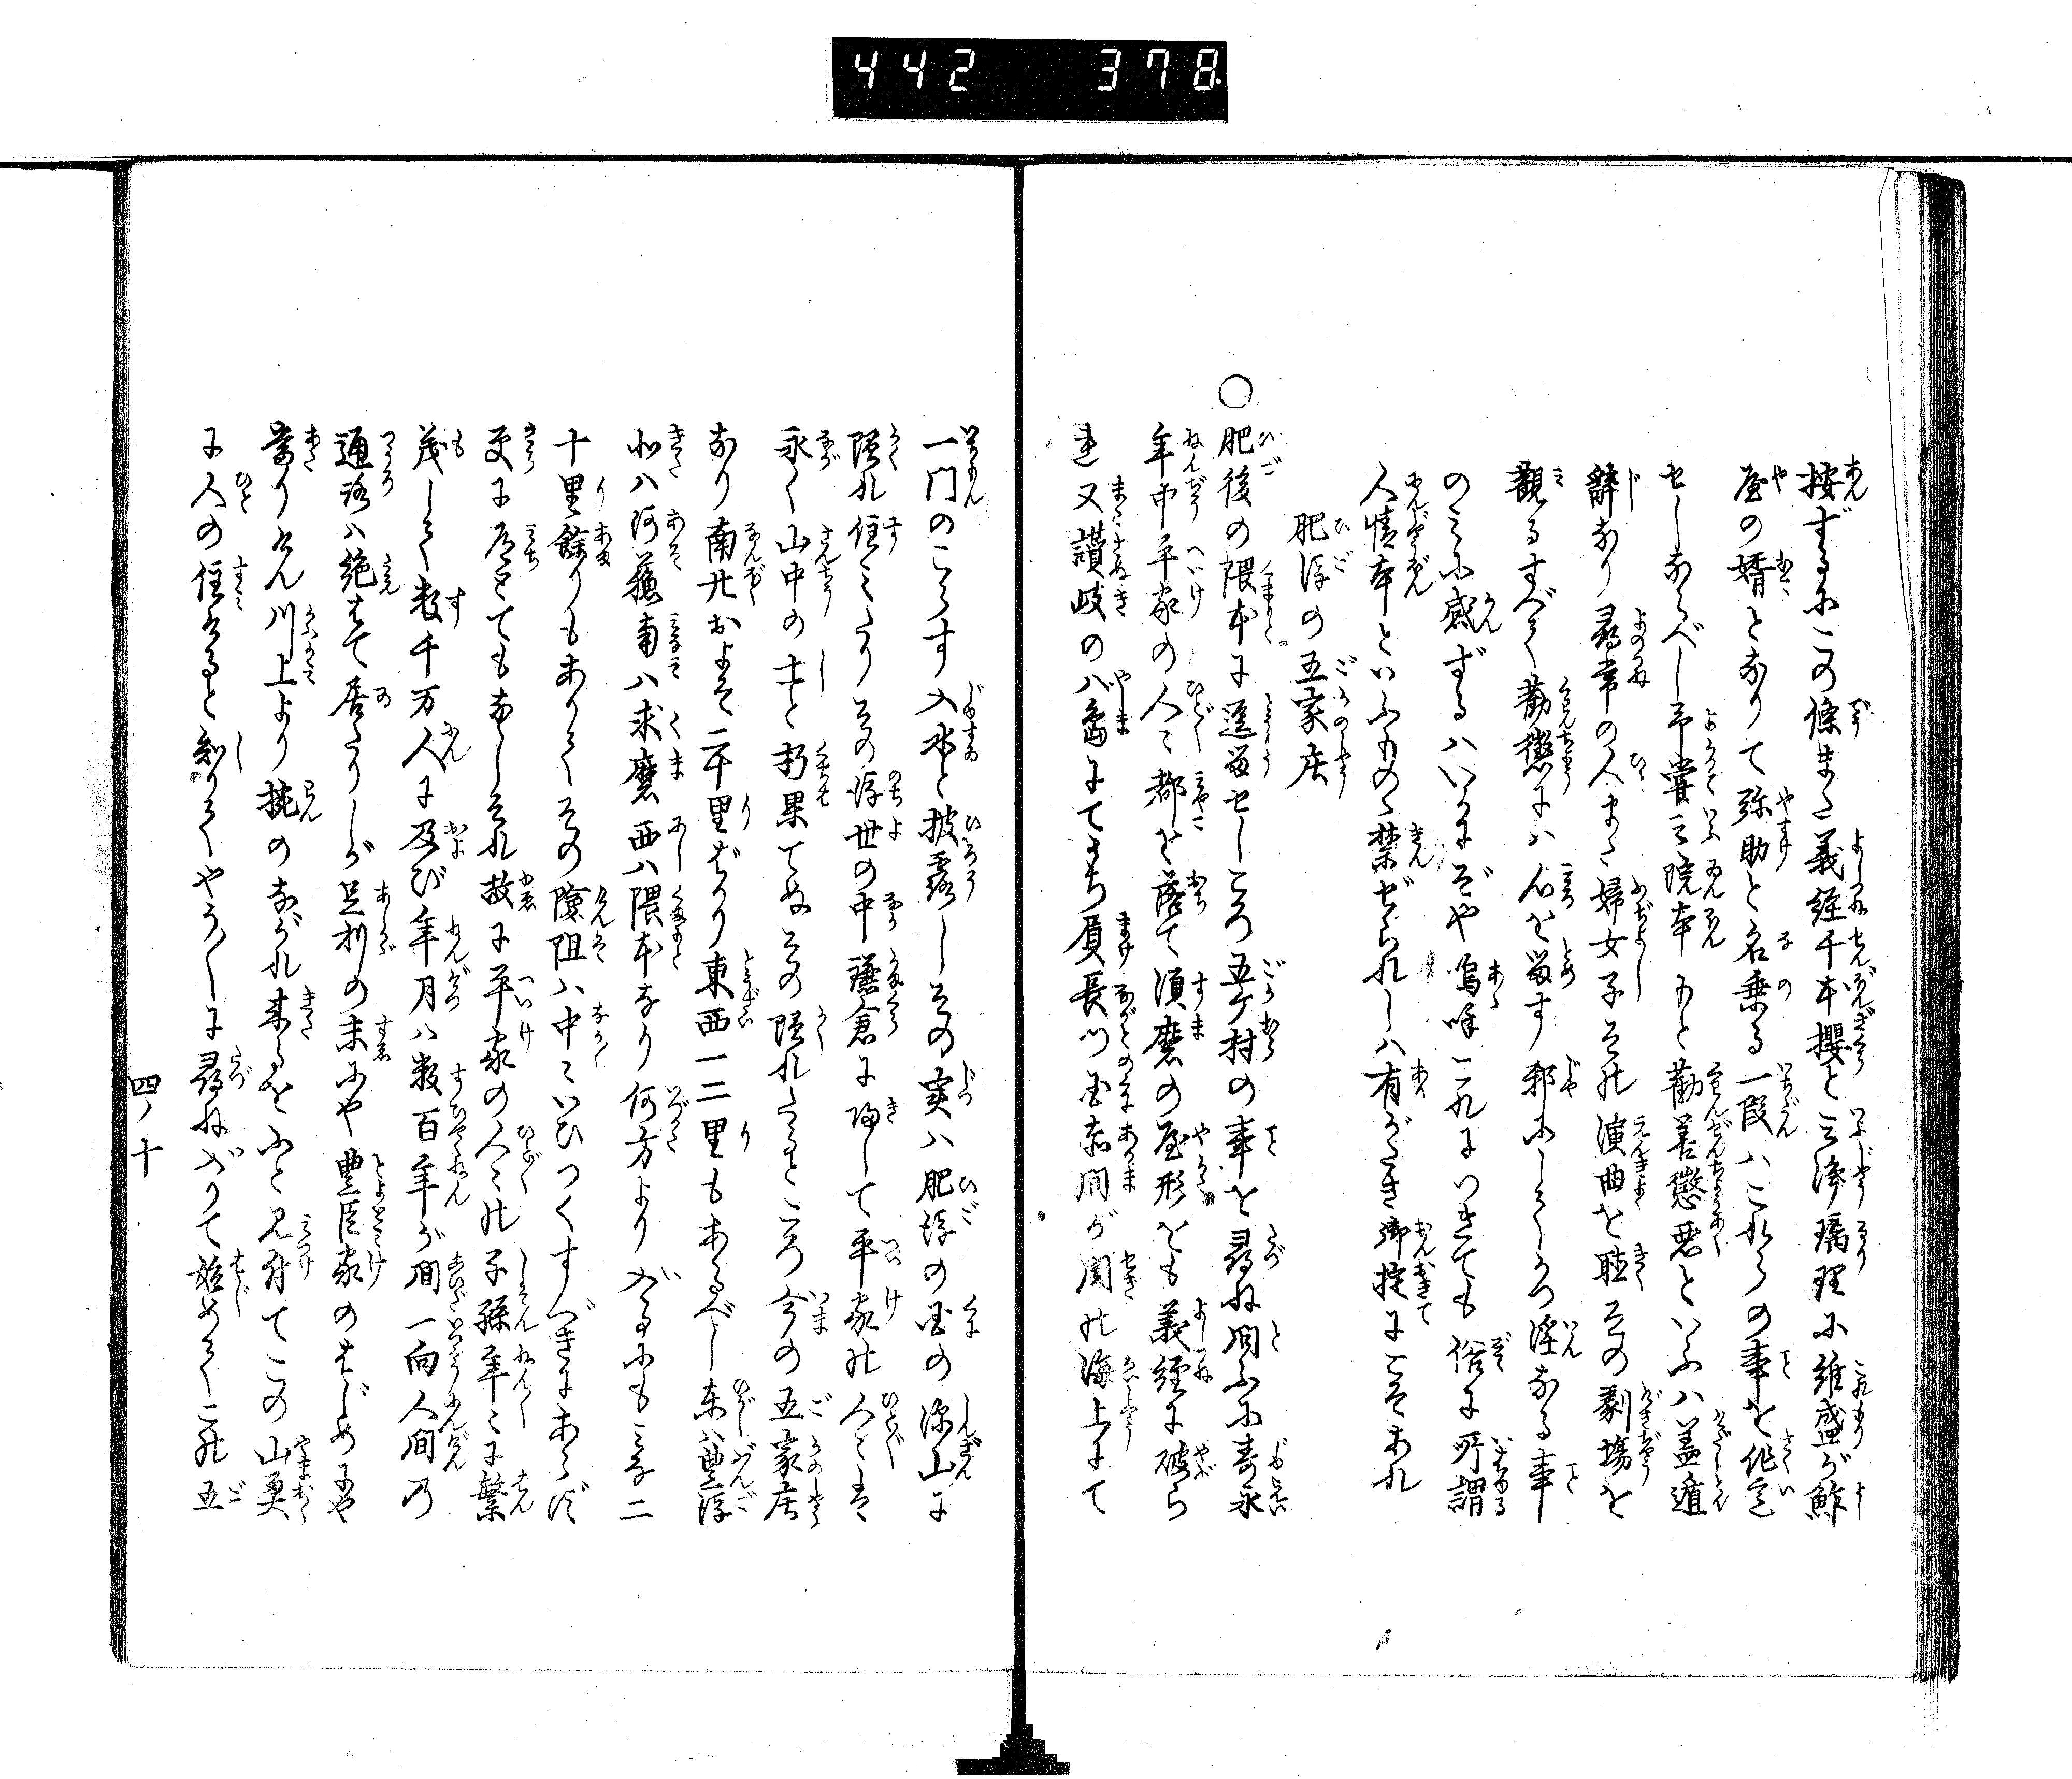 442 378
按ずるにこの條また義経千本櫻と云浄瑠理に維盛が鮓
屋の婿となりて弥助と名乗る一段ハこれらの事を作意
せしなるべし予嘗云院本もと勧善懲悪といふハ蓋遁
辞なり尋常の人また婦女子その演曲を聴その劇場を
観るすべて勧懲にハ心を留す邪にしてかつ淫なる事
のミに感ずるハいかにぞや嗚呼これにつきても俗に所謂
人情本といふもの禁ぜられしハ有がたき御掟にこそあれ
肥後の五家庄
○肥後の隈本に逗留せしころ五ケ村の事を尋ね問ふに寿永
年中平家の人々都を落て須磨の屋形をも義経に破ら
れ又讃岐の八島にてうち負長門国赤間が関の海上にて
一門のこらず入水と披露しその実ハ肥後の国の深山に
隠れ住ミたりその後世の中鎌倉に帰して平家の人々も
永く山中の士と朽果てぬその隠れたるところ今の五家庄
なり南北およそ二十里ばかり東西一二里もあるべし東ハ豊後
北ハ阿蘓南ハ求麻西ハ隈本なり何方より入るにもミな二
十里餘りもありてその険阻ハ中々いひつくすべきにあらず
更に道とてもなしそれ故に平家の人々の子孫年々に繁
茂して数千万人に及び年月ハ数百年が間一向人間の
通路ハ絶はて居たりしが足利の末にや豊臣家のはじめにや
當りけん川上より椀のながれ来るをふと見付てこの山奥
に人の住けると知りてやう〳〵に尋ね入りて始めてこの五
四ノ十